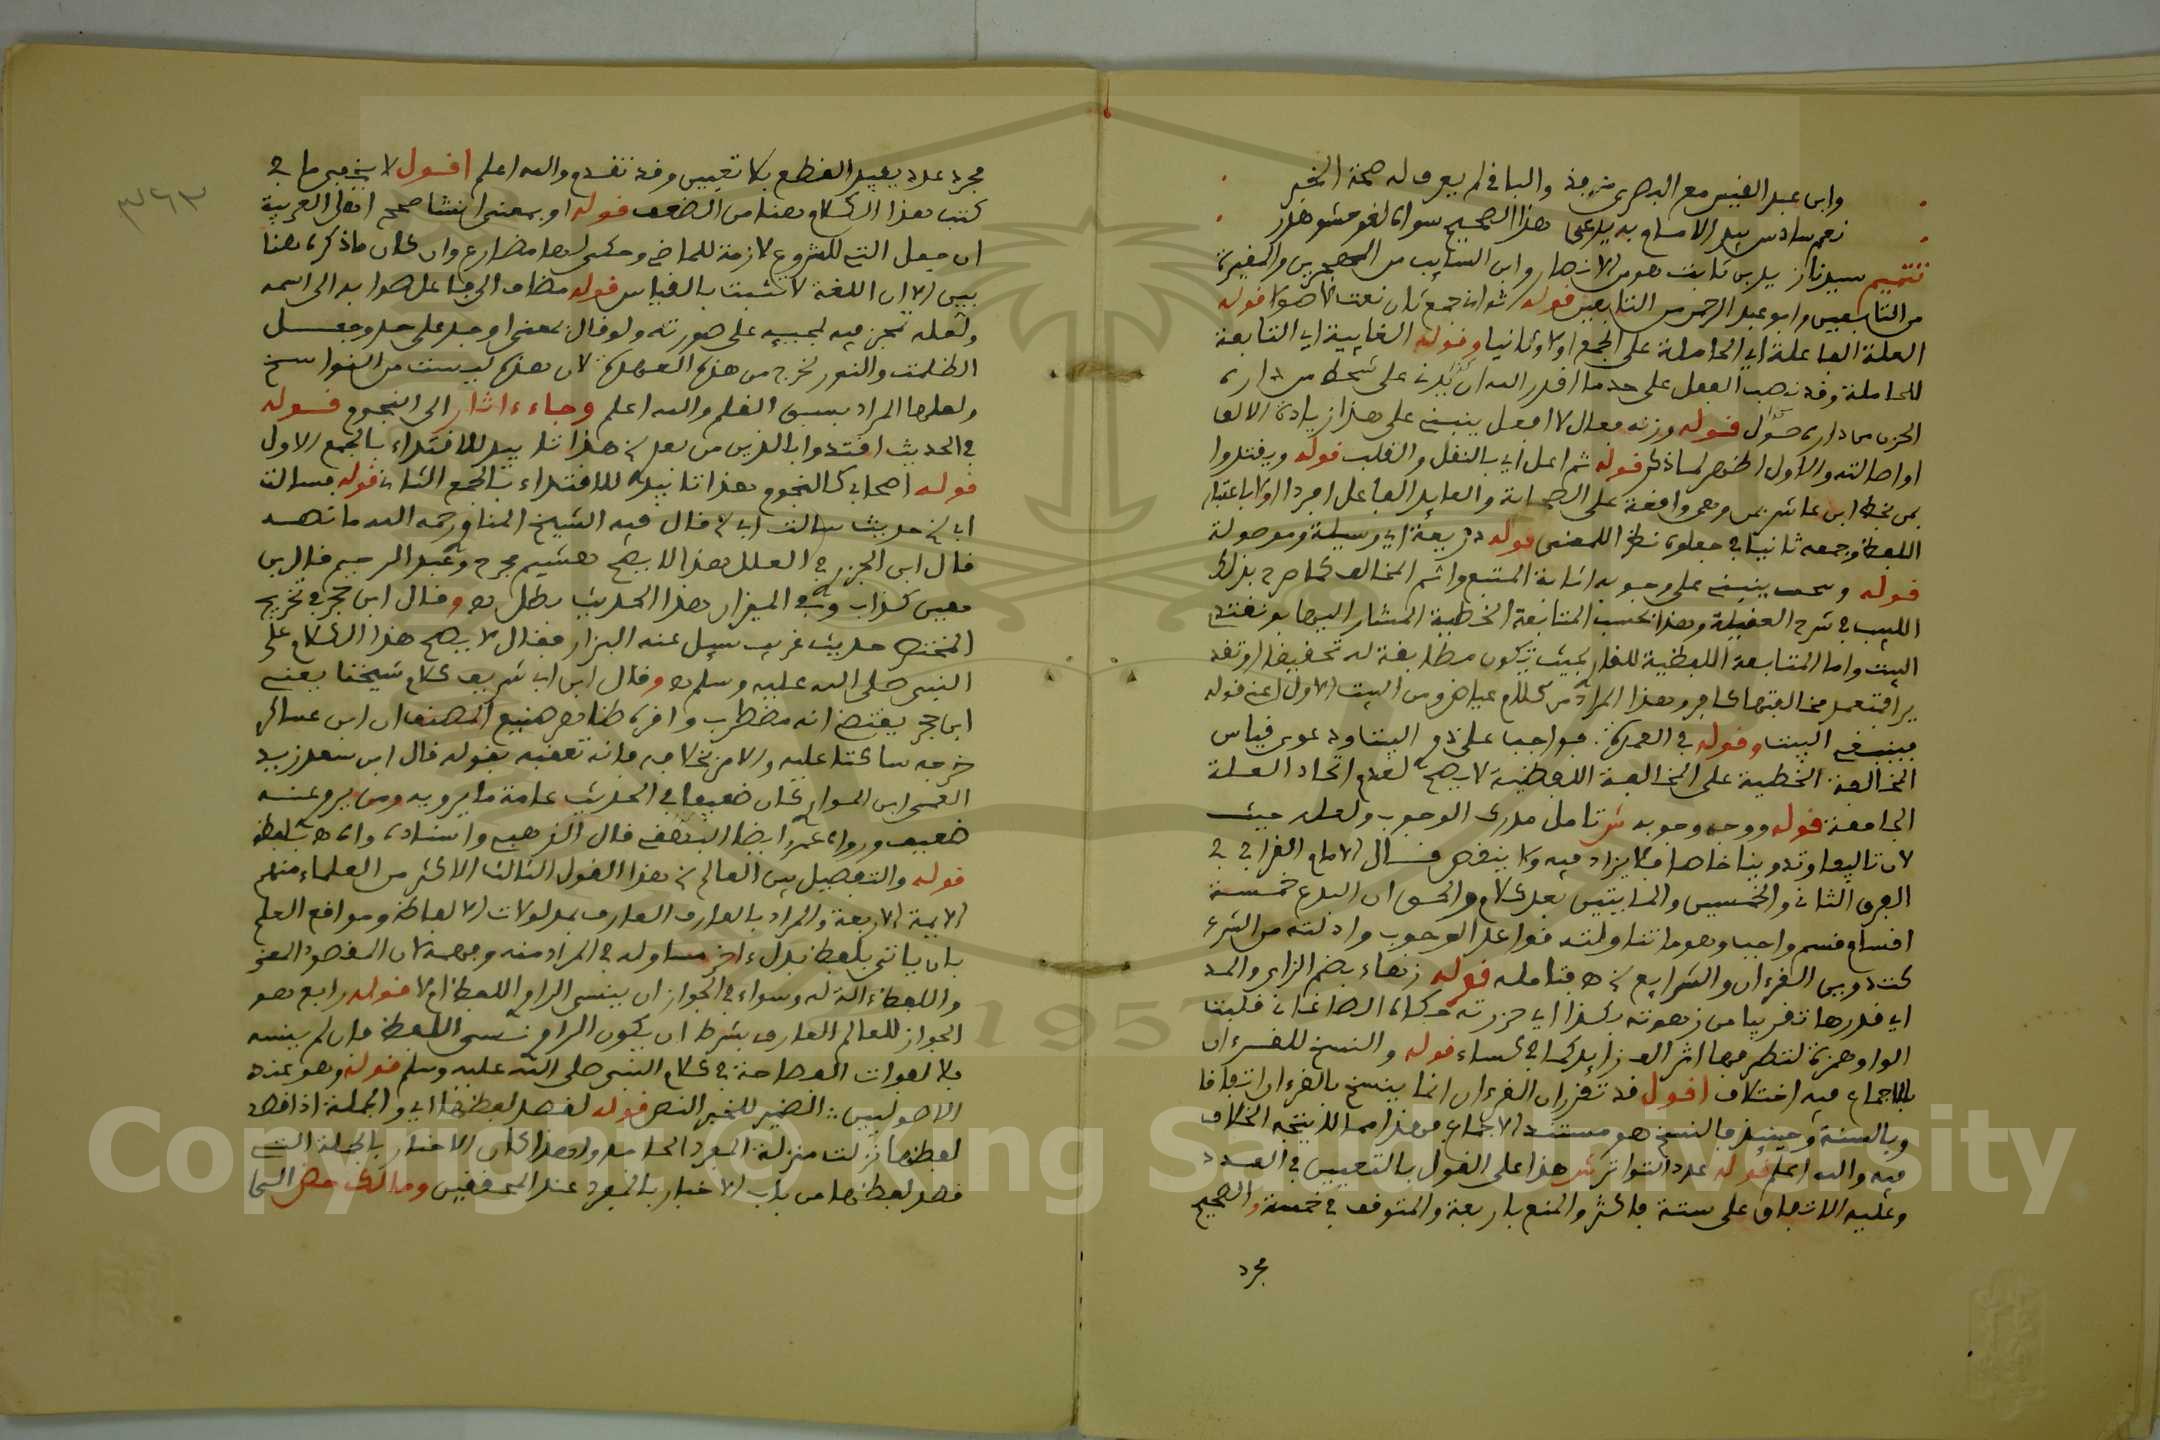 وابن عبد القيس مع البصري من قد والباقي لم يعرف له صحة الخبر
نعم سادس بيد الامام به يدعى هذا الصحيح سواه لغو مشوهذر
تتميم سيدنا زيد بن ثابت هو من الانصار وابن السايب من المهجرين والمغيرة
من التابعين وابو عبد الرحمن من التابعين قوله شواث جمع ثان نعت قوله
العلة الفاعلة اي الحاملة على الجمع اولا وثانيا وقوله الغايية اي التابعة
للحاملة وقد ذهب العقل على حد ما اقدر الله ان على شحط من داره
الحزن من داره صول قوله وزنه فعال لا افعل ينبني على هذا زيادة الالف
او اصالته والاول اظهر لما ذكر قوله ثم اعل اي بالنقل والقلب قوله ويقتدوا
بمن بخط ابن عاشر من وهي واقعة على الصحابة والعايد الفاعل افرد اولا باعتبار
اللفظ وجمعه ثانيا في جعلوه نظرا للمعنى قوله ذريعة اي وسيلة وموصولة
قوله وسحب ينبني على وجوبه اثابة المتبع واثم المخالف كما صرح بذلك
اللبيب في شرح العقيلة وهذا بحسب المتابعة الخطية المشار اليها بونقتد
البيت واما المتابعة اللفظية للقار بحيث تكون مطابقة له تحقيقا او تقد
يرا فتعمد مخالفتها كافر وهذا المراد من كلام عياض ومن البيت الاول اعني قوله
فينبغي البيت وقوله في العمدة فواجب على ذو البيت ودعوى قياس
المخالفة الخطية على المخالفة اللفظية لا يصح لعدم اتحاد العلة
الجامعة قوله ووجه وجوبه تامل مدرك الوجوب ولعله حيث
لان تاليفا وتدوينا خاصا فلا يزاد فيه ولا ينقص قال الامام القرافي في
الفرق الثاني والخمسين والمايتين بعد كلام والحق ان البدع خمسة
اقسام قسم واجب وهو ما تناولته قواعد الوجوب وادلته من الشرع
كتدوين القرءان والشرايع الخ فتامله قوله زهاء بضم الزاي والمد
اي قدرها تقريبا من زهوته بكذا اي حزرته حكاه الصاغاني قلبت
الواو همزة لتطرفها اثر الف زايد كما في كساء قوله والنسخ للقرءان
بالاجماع فيه اختلاف اقول قد تقرر ان القرءان انما ينسخ بالقرءان اتفاقا
وبالسنة وحينيذ فالنسخ هو مستند الاجماع من هذا مما لا يتجه الخلاف
فيه والله اعلم قوله عدد التواتر هذا على القول بالتعيين في العدد
وعليه الاتفاق على ستة فاكثر والمنع باربعة والتوقف في خمسة والصحيح
مجرد
٣٦٣
مجرد عدد يفيد القطع بلا تعيين وقد تقدم والله اعلم اقول لا يخفى ما في
كتب هذا الكلام هنا من الضعف قوله او بمعنى انشا صحح اهل العربية
ان جعل التي للشروع لازمة للماضي وحكى لها مضارع وان كان ما ذكره هنا
بين الا ان اللغة لا تثبت بالقياس قوله مضاف الى فاعل صوابه الى اسمه
ولعله تجوز فيه لمجييه على صورته ولو قال بمعنى اوجد على حد وجعل
الظلمت والنور لخرج من هذه العهدة لان هذه ليست من النواسخ
ولعلها المراد بسبق القلم والله اعلم وجاء ءاثار الى النجوم قوله
في الحديث اقتدوا بالذين من بعدي الخ هذا تاييد للاقتداء بالجمع الاول
قوله اصحابي كالنجوم هذا تاييد للاقتداء بالجمع الثاني قوله فسالت
اي الخ حديث سالت ربي الخ قال فيه الشيخ المناوي رحمه الله ما نصه
قال ابن الجوزي في العلل هذا لا يصح نعيم مجرح وعبد الرحيم قال بن
معين كذاب وفي الميزان هذا الحديث بطل اهـ وقال ابن حجر في تخريج
المختصر حديث غريب سيل عنه البزار فقال لا يصح هذا الكلام على
النبي صلى الله عليه وسلم اهـ وقال ابن ابي شريف كلام شيخنا يعني
ابن حجر يقتضي انه مضطرب واقره ظاهر صنيع المصنف ان ابن عساكر
خرجه ساكتا عليه والامر بخلافه فانه تعقبه بقوله قال ابن سعد زيد
العمي ابن الحواري كان ضعيفا في الحديث عامة ما يرويه ومن يروي عنه
ضعيف ورواه عمر ايضا البيهقي قال الذهبي واسناده واه اهـ بلفظه
قوله والتفصيل بين العالم الخ هذا القول الثالث لاكثر من العلماء منهم
الايمة الاربعة والمراد بالعارف العارف بمدلولات الالفاظ ومواقع العلم
بان ياتي بلفظ بدل ءاخر مساو له في المراد منه وفهمه لان المقصود المعنى
واللفظ ءالة له وسواء في الجواز ان ينسى الراوي اللفظ ام لا قوله رابع هو
الجواز للعالم العارف بشرط ان يكون الراوي نسي اللفظ فان لم ينسه
فلا لفوات الفصاحة في كلام النبي صلى الله عليه وسلم قوله وهو عنده
الاصوليين الضمير للخبر النص قوله لقصد لفظها اي والجملة اذا قصد
لفظها نزلت منزلة المفرد الجامد ولهذا كان الاخبار بالجملة التي
قصد لفظها من باب الاخبار بالمفرد عند المحققين ومالك حض اتباع